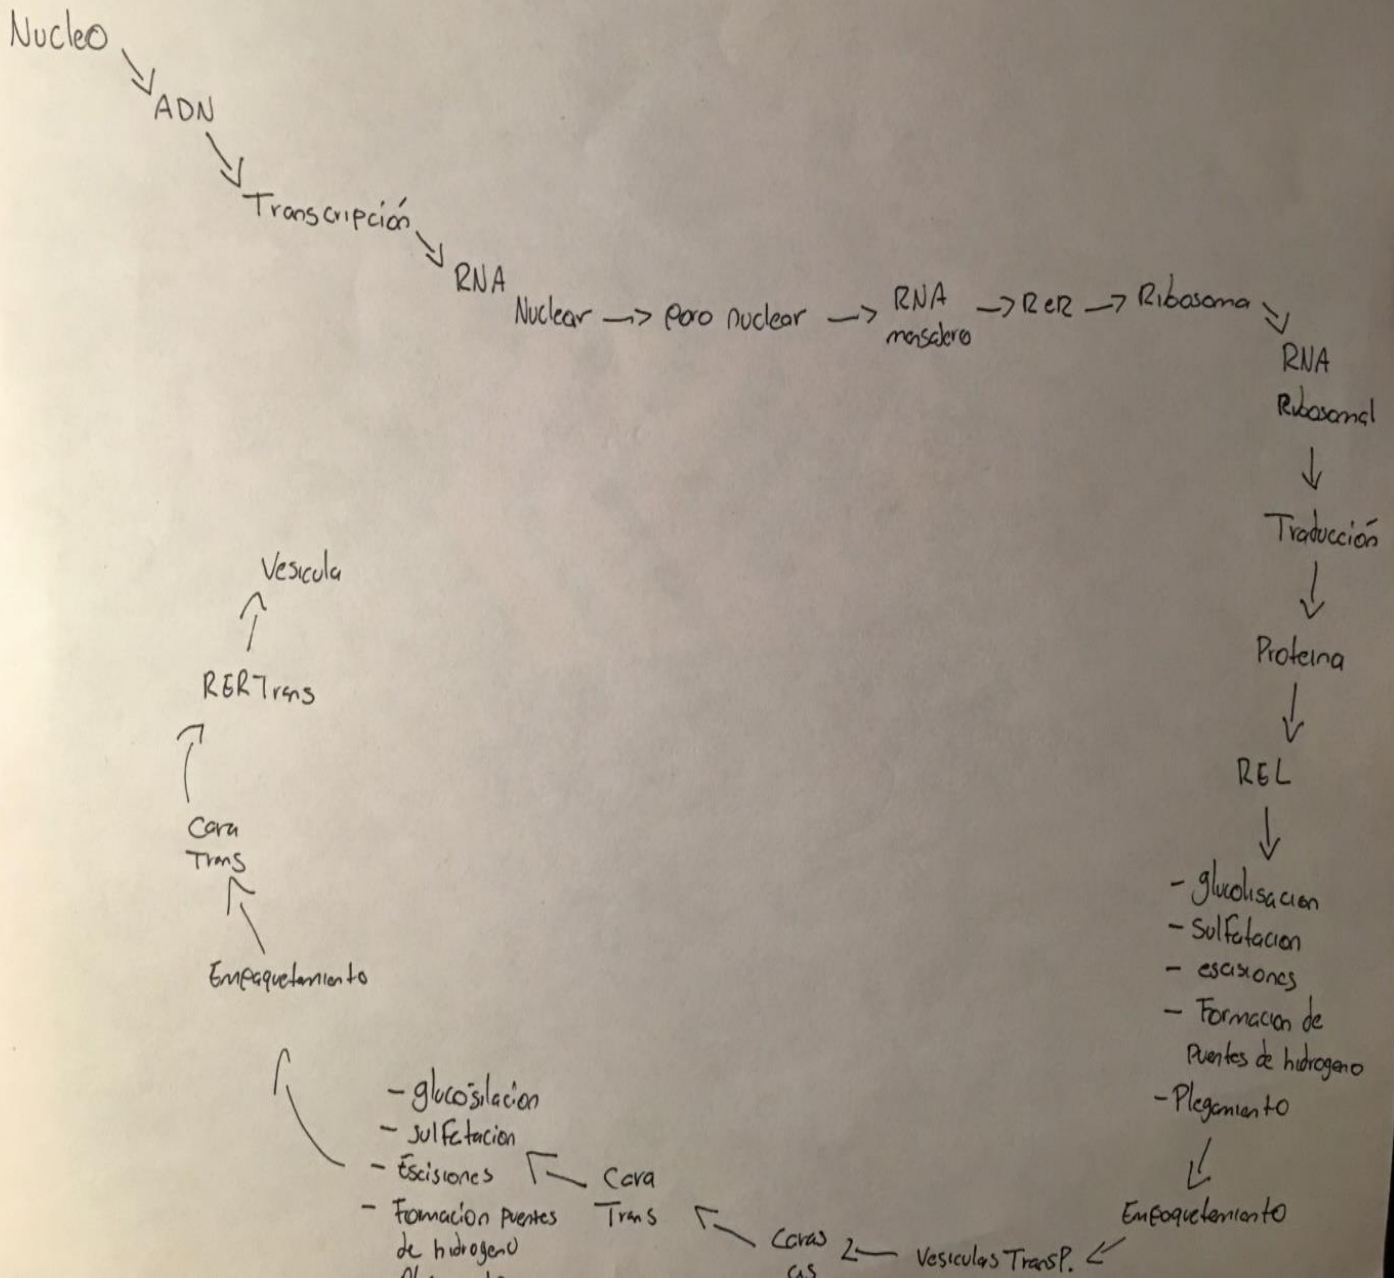 Nucleo
ADN
Transcripción
RNA
Nuclear → Poro nuclear → RNA → RER → Ribosoma
mensajero
RNA
Ribosomal
Traducción
Proteina
REL
- glucolisacion
- Sulfatacion
- escisiones
- Formacion de
Puentes de hidrogeno
- Plegamiento
Empaquetamiento
Vesiculas Transp.
Caras
cis
Cara
Trans
- glucosilacion
- sulfatacion
- Escisiones
- Formacion puentes
de hidrogeno
Empaquetamiento
Cara
Trans
RERTrans
Vesicula